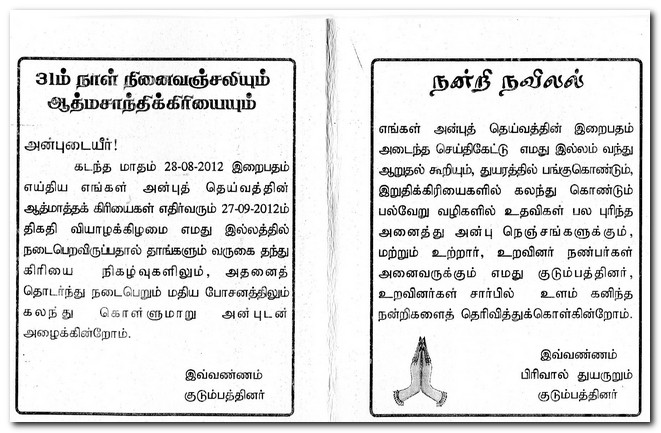 31ம் நாள் நினைவஞ்சலியும்
ஆத்மசாந்திக்கிரியையும்
அன்புடையீர்!
கடந்த மாதம் 28-08-2012 இறைபதம்
எய்திய எங்கள் அன்புத் தெய்வத்தின்
ஆத்மாத்தக் கிரியைகள் எதிர்வரும் 27-09-2012ம்
திகதி வியாழக்கிழமை எமது இல்லத்தில்
நடைபெறவிருப்பதால் தாங்களும் வருகை தந்து
கிரியை நிகழ்வுகளிலும், அதனைத்
தொடர்ந்து நடைபெறும் மதிய போசனத்திலும்
கலந்து கொள்ளுமாறு அன்புடன்
அழைக்கின்றோம்.
இவ்வண்ணம்
குடும்பத்தினர்
நன்றி நவிலல்
எங்கள் அன்புத் தெய்வத்தின் இறைபதம்
அடைந்த செய்திகேட்டு எமது இல்லம் வந்து
ஆறுதல் கூறியும், துயரத்தில் பங்குகொண்டும்,
இறுதிக்கிரியைகளில் கலந்து கொண்டும்
பல்வேறு வழிகளில் உதவிகள் பல புரிந்த
அனைத்து அன்பு நெஞ்சங்களுக்கும்,
மற்றும் உற்றார், உறவினர் நண்பர்கள்
அனைவருக்கும் எமது குடும்பத்தினர்,
உறவினர்கள் சார்பில் உளம் கனிந்த
நன்றிகளைத் தெரிவித்துக்கொள்கின்றோம்.
இவ்வண்ணம்
பிரிவால் துயருறும்
குடும்பத்தினர்